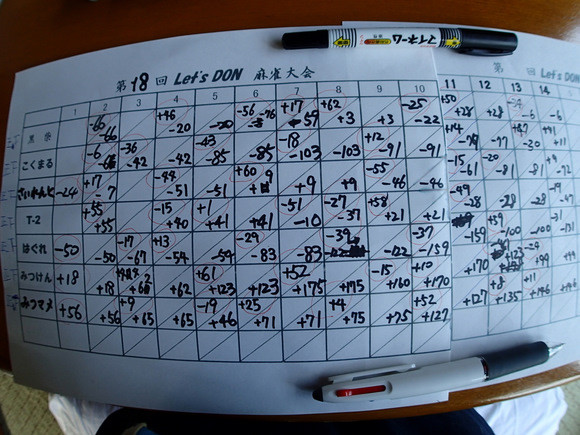 マイネーム
第18回 Let's DON 麻雀大会
第 回 Let's DON
1 2 3 4 5 6 7 8 9 10 11 12 13 14
-66 +46 -56 +17 +62 -25 +50
-66 -20 -20 -76 -59 +3 +3 -22 +28 +28 -6 -6
こくまる -6 -36 -43 -18 +12 +14
-42 -42 -85 -85 -103 -103 -91 -91 -77 -77 -30 +11
さいれんと -24 +17 -44 +60 -55 -15 -20
-7 -51 -51 +9 +9 -46 -46 -61 -81 -81 -72
T-2 +55 -15 +1 -51 -27 +58 -49
+55 +40 +41 +41 -10 -37 +21 +21 -28 -28 -28
はぐれ -50 -17 +13 -29 -39 -37 +59
-50 -67 -54 -54 -83 -83 -122 -122 -159 -159 -100 -100
みつけん +18 +61 +52 -15 +10 -24
+18 +62 +123 +123 +175 +175 +160 +170 +170 +123 +99 +99
みつマメ +56 +9 -19 +25 +4 +52 +8 +11
+56 +65 +65 +46 +71 +71 +75 +75 +127 +127 +135 +146 +146